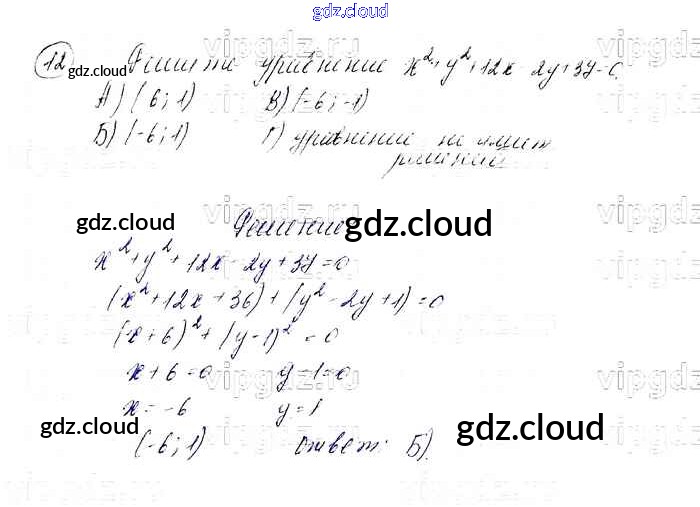 gdz.cloud
12 Решите уравнение x²+y²+12x-2y+37=0.
gdz.cloud
А) (6; 1) В) (-6; -1)
Б) (-6; 1) Г) уравнение не имеет
решений
vipgdz
gdz.cloud Решение gdz.cloud
x²+y²+12x-2y+37=0
(x²+12x+36)+(y²-2y+1)=0
(x+6)²+(y-1)²=0
x+6=0 y-1=0
x=-6 y=1
gdz.cloud gdz.cloud
(-6; 1) ответ: Б).